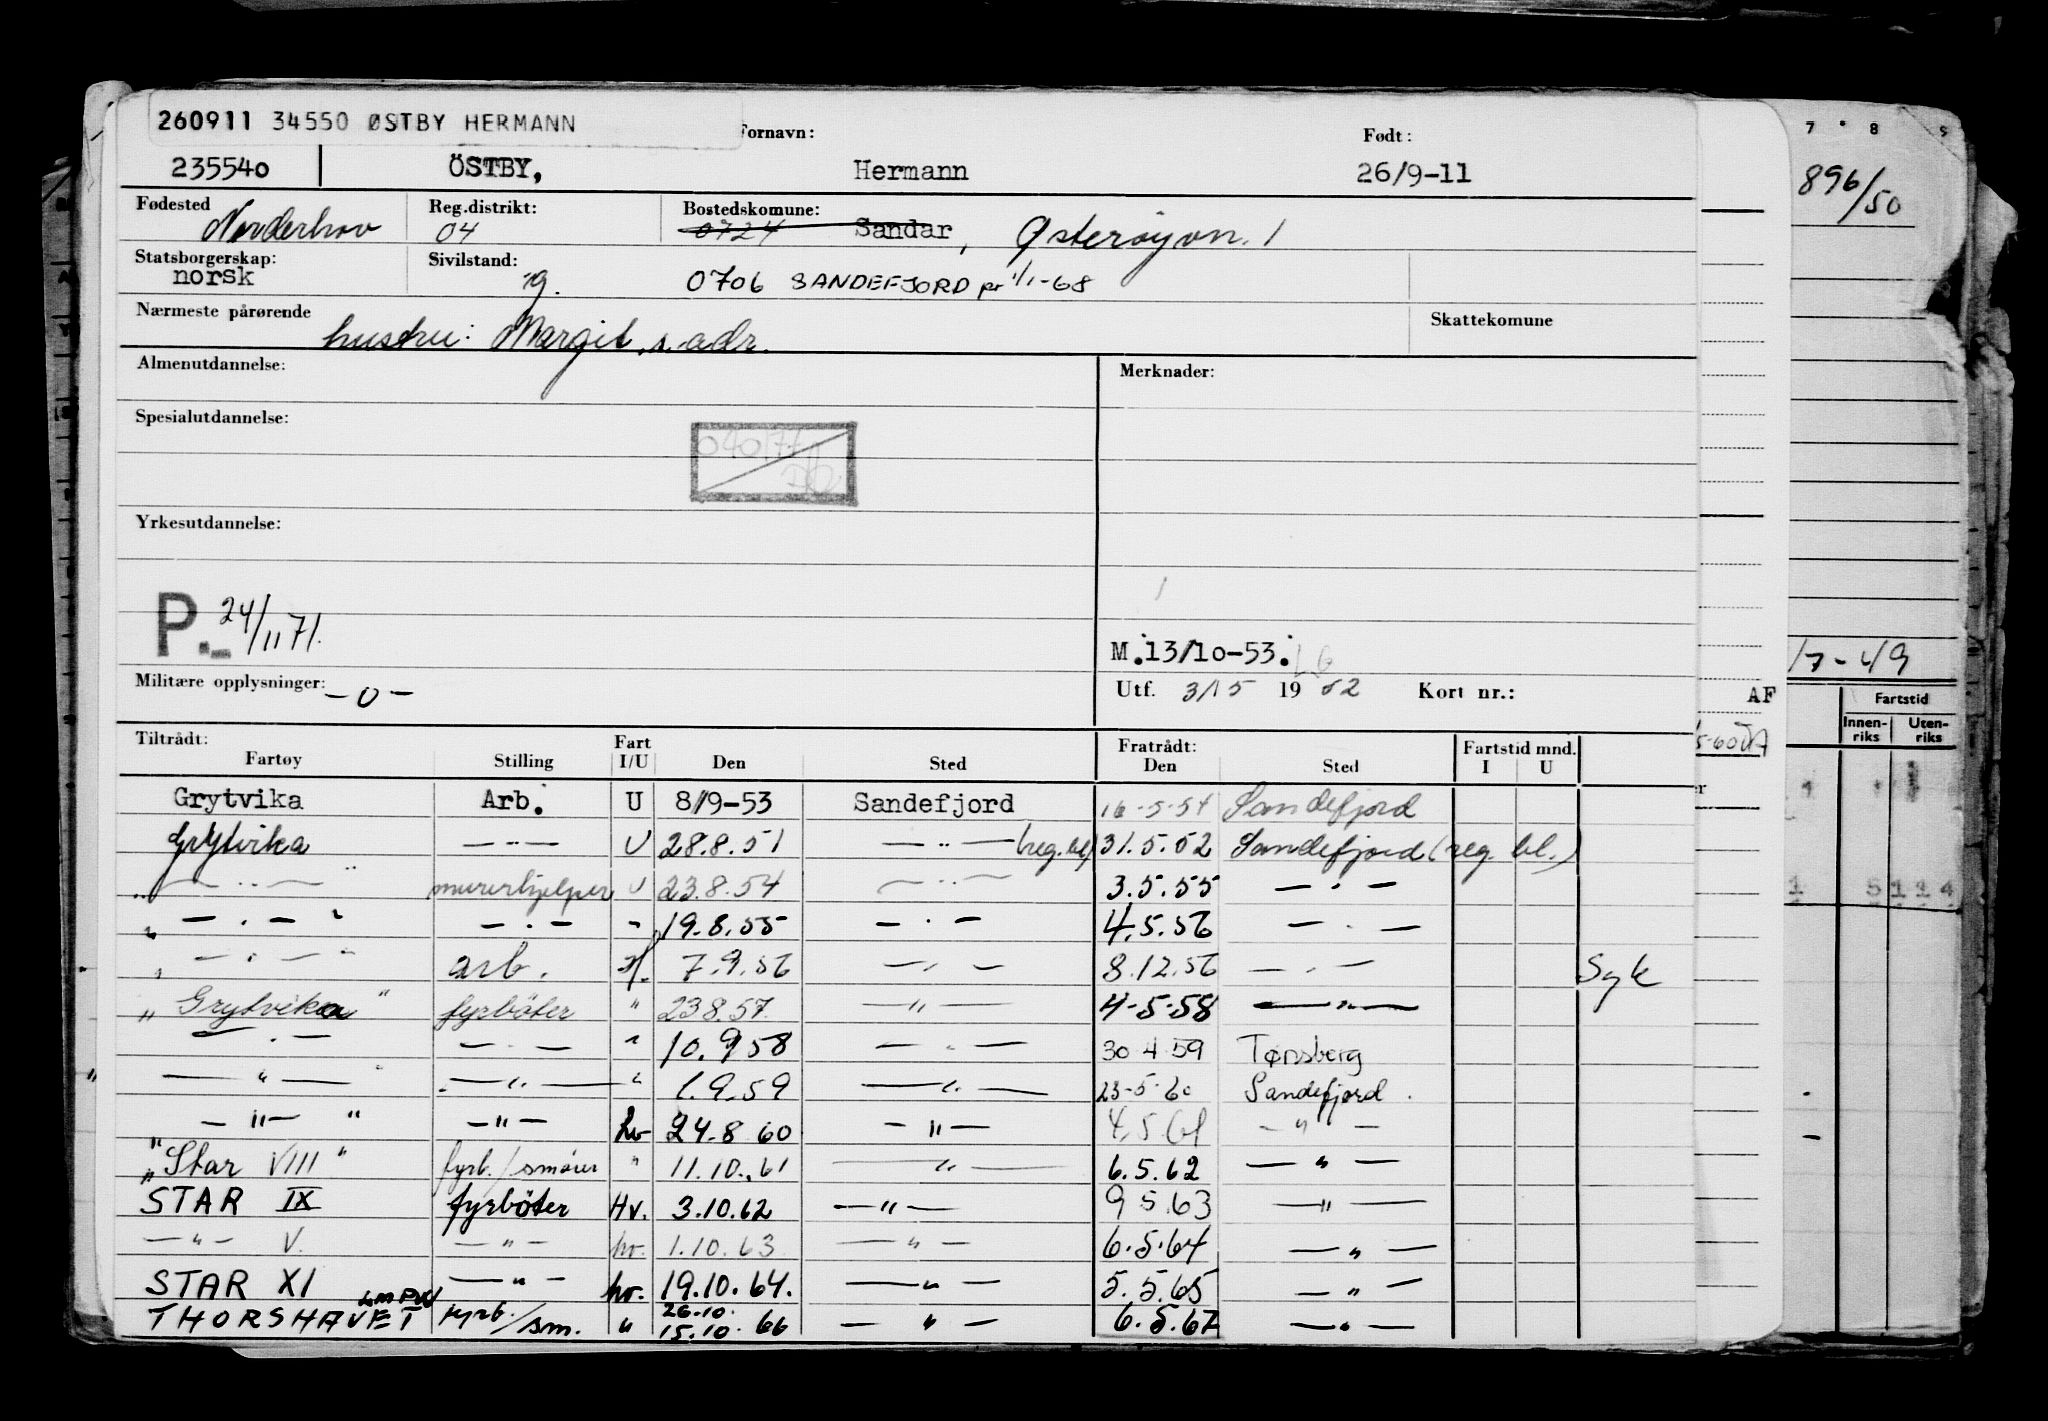 260911 34550 ØSTBY HERMANN
Fornavn: Født:
235540 ÖSTBY, Hermann 26/9-11
Fødested Reg.distrikt: Bostedskomune:
Norderhov 04 0724 Sandar, Østerøyvn. 1
Statsborgerskap: Sivilstand:
norsk g. 0706 SANDEFJORD pr 1/1-68
Nærmeste pårørende Skattekomune
hustru: Margit, s. adr.
Almenutdannelse: Merknader:
Spesialutdannelse:
040177
Yrkesutdannelse:
P. 24/11 71.
M.13/10-53.
Militære opplysninger: -0- Utf. 3/15 1952 Kort nr.:
Tiltrådt: Fart Fratrådt: Fartstid mnd.
Fartøy Stilling I/U Den Sted Den Sted I U
Grytvika Arb. U 8/9-53 Sandefjord 16-5-54 Sandefjord
Grytvika — " — U 28.8.51 — " — (reg.bl) 31.5.52 Sandefjord (reg. bl.)
" — " — " murerhjelper U 23.8.54 — " — 3.5.55 — " —
" — " — " — " — " 19.8.55 — " — 4.5.56 — " —
" — " — " arb. 7.9.56 — " — 8.12.56 — " — Syk
" Grytvika " fyrböter " 23.8.57. — " — 4-5-58 — " —
— " — — " — " 10.9.58 — " — 30 4 59 Tønsberg
" — " — " — " — " 1.9.59 — " — 23-5-60 Sandefjord.
— " — " — " — hv 24.8 60 — " — 4.5.61 — " —
" Star VIII " fyrb./smører " 11.10.61 — " — 6.5.62 — " —
STAR IX fyrböter Hv. 3.10.62 — " — 9 5.63 — " —
— " — V. — " — hv. 1.10.63 — " — 6.5.64 — " —
STAR XI — " — hv. 19.10.64. — " — 5.5.65 — " —
THORSHAVET fyrb./sm. " 26.10. 15.10.66 — " — 6.5.67 — " —
7 8
896/50
/7-49
AF
Fartstid
Innen-riks Uten-riks